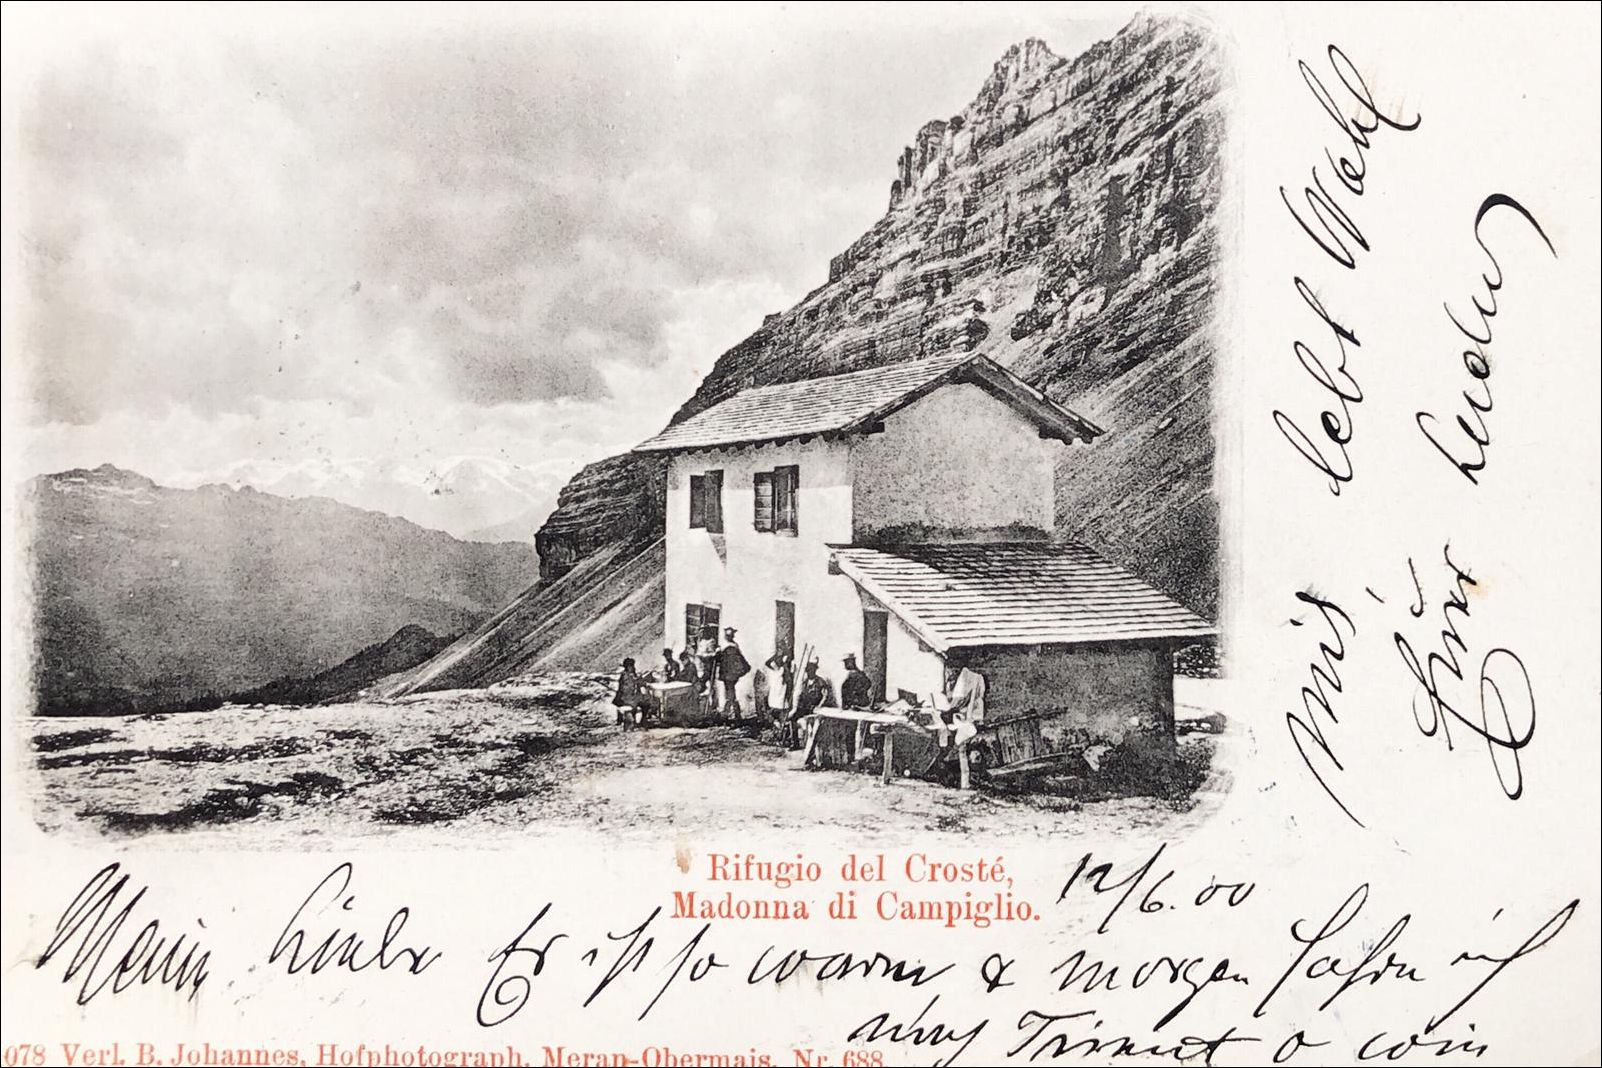 Rifugio del Crosté,
Madonna di Campiglio.
12/6.00
Mein Liebe Es ist so warm & morgen fahre ich
nach Trient o wie
mis lebt Wohl
Euer
078 Verl. B. Johannes, Hofphotograph, Meran-Obermais. Nr. 688.